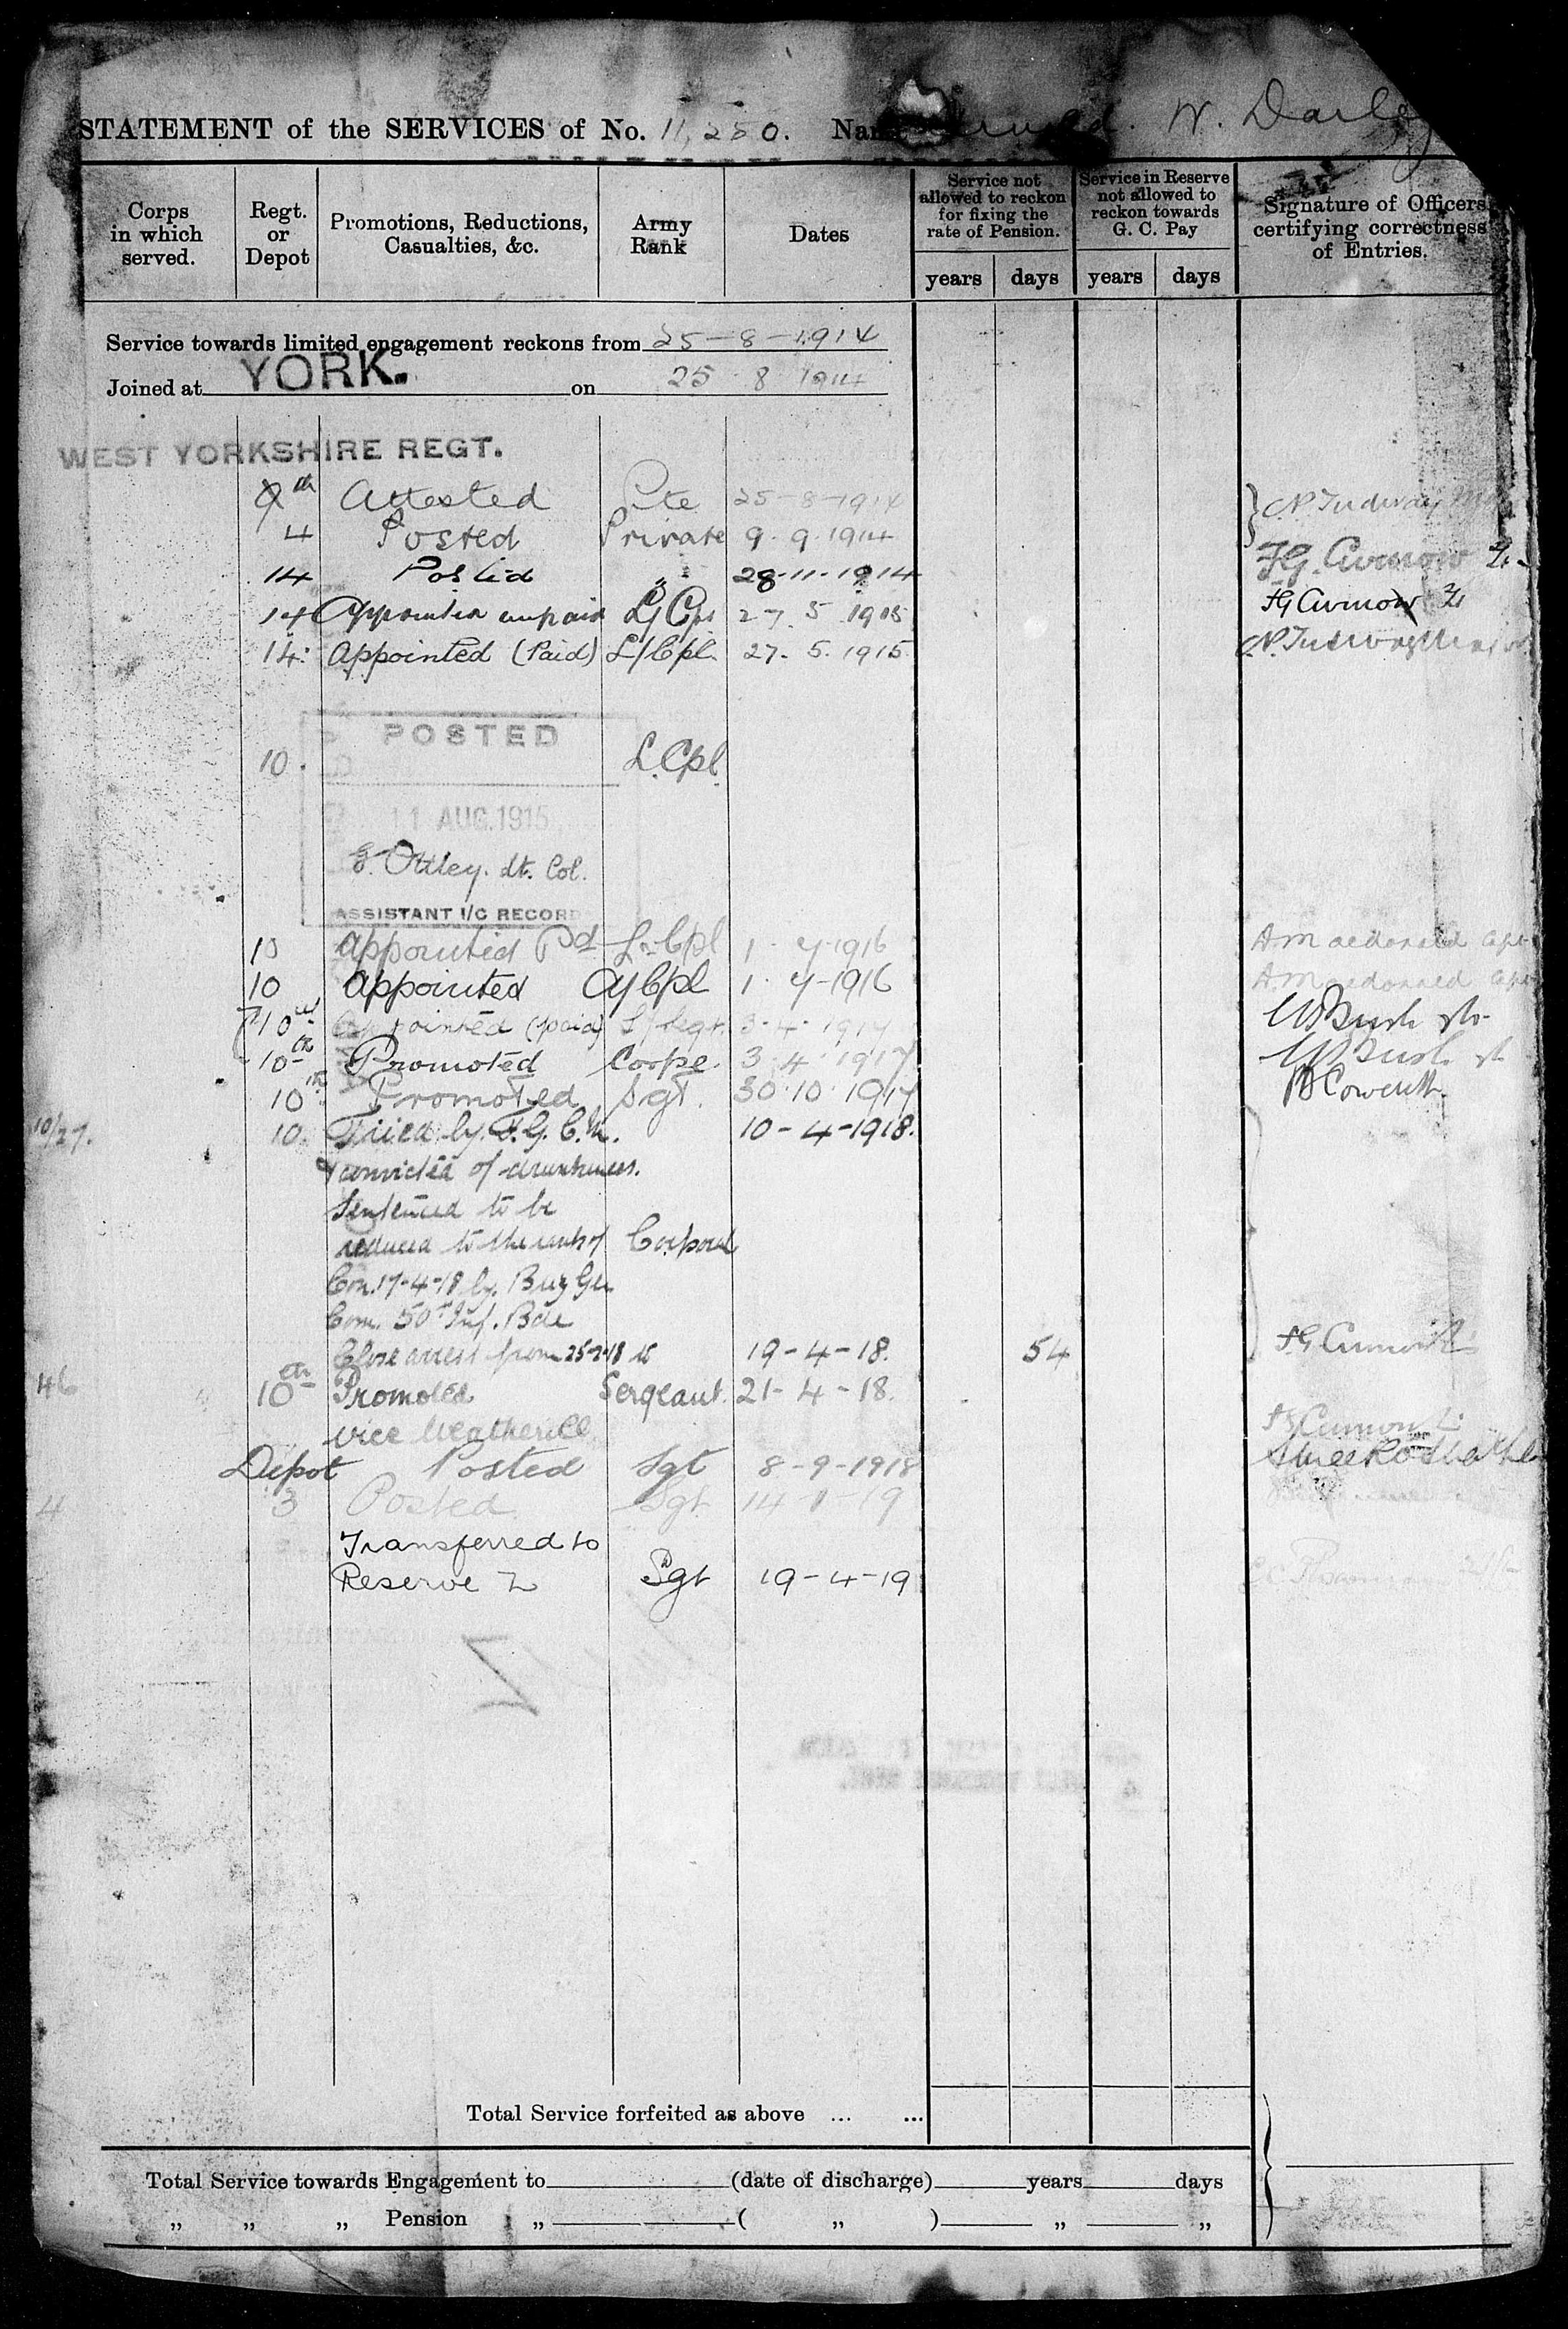 STATEMENT of the SERVICES of No. 11,250. W. Darley
Corps in which served.
Regt. or Depot
Promotions, Reductions, Casualties, &c.
Army Rank
Dates
Service not allowed to reckon for fixing the rate of Pension.
Service in Reserve not allowed to reckon towards G. C. Pay
Signature of Officers certifying correctness of Entries.
years days years days
Service towards limited engagement reckons from 25-8-1914
Joined at YORK. on 25 8 1914
WEST YORKSHIRE REGT.
th Attested Pte 25-8-1914
4 Posted Private 9.9.1914
14 Posted " 28.11.1914
14 Appointed unpaid L/Cpl 27.5.1915
14. Appointed (Paid) L/Cpl. 27.5.1915
POSTED
10. L.Cpl.
11 AUG.1915
Ottley. Lt. Col.
ASSISTANT I/C RECORD
10 Appointed Pd L-Cpl 1. 4-1916 A Macdonald Capt
10 Appointed A/Cpl 1. 4-1916 A Macdonald Capt
10th Appointed (paid) L/Sgt. 3-4-1917
10th Promoted Corpl. 3.4.1917
10th Promoted Sgt. 30.10.1917
10/27. 10. Tried by F.G.C.M. 10-4-1918.
& convicted of drunkenness.
Sentenced to be
reduced to the rank of Corporal
Con. 17-4-18 by Brig Gen
Com. 50th Inf. Bde
Close arrest from 25-2-18 to 19-4-18. 54
46 10th Promoted Sergeant. 21-4-18.
vice Weatherill
Depot Posted Sgt 8-9-1918
4 3 Posted Sgt 14-1-19
Transferred to
Reserve Z Sgt 19-4-19
Total Service forfeited as above ... ...
Total Service towards Engagement to (date of discharge) years days
" " " Pension " ( " ) " "